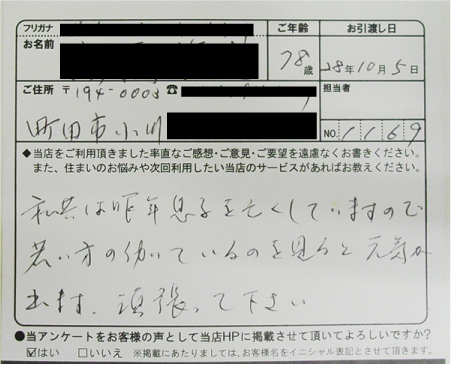 フリガナ
お名前
ご年齢
78歳
お引渡し日
28年10月5日
ご住所 〒194-0003 ☎
町田市小川
担当者
NO. 1169
◆当店をご利用頂きました率直なご感想・ご意見・ご要望を遠慮なくお書きください。
また、住まいのお悩みや次回利用したい当店のサービスがあればお教えください。
私共は昨年息子を亡くしていますので
若い方の働いているのを見ると元気が
出ます、頑張って下さい
●当アンケートをお客様の声として当店HPに掲載させて頂いてよろしいですか?
☑はい □いいえ ※掲載にあたりましては、お客様名をイニシャル表記とさせて頂きます。